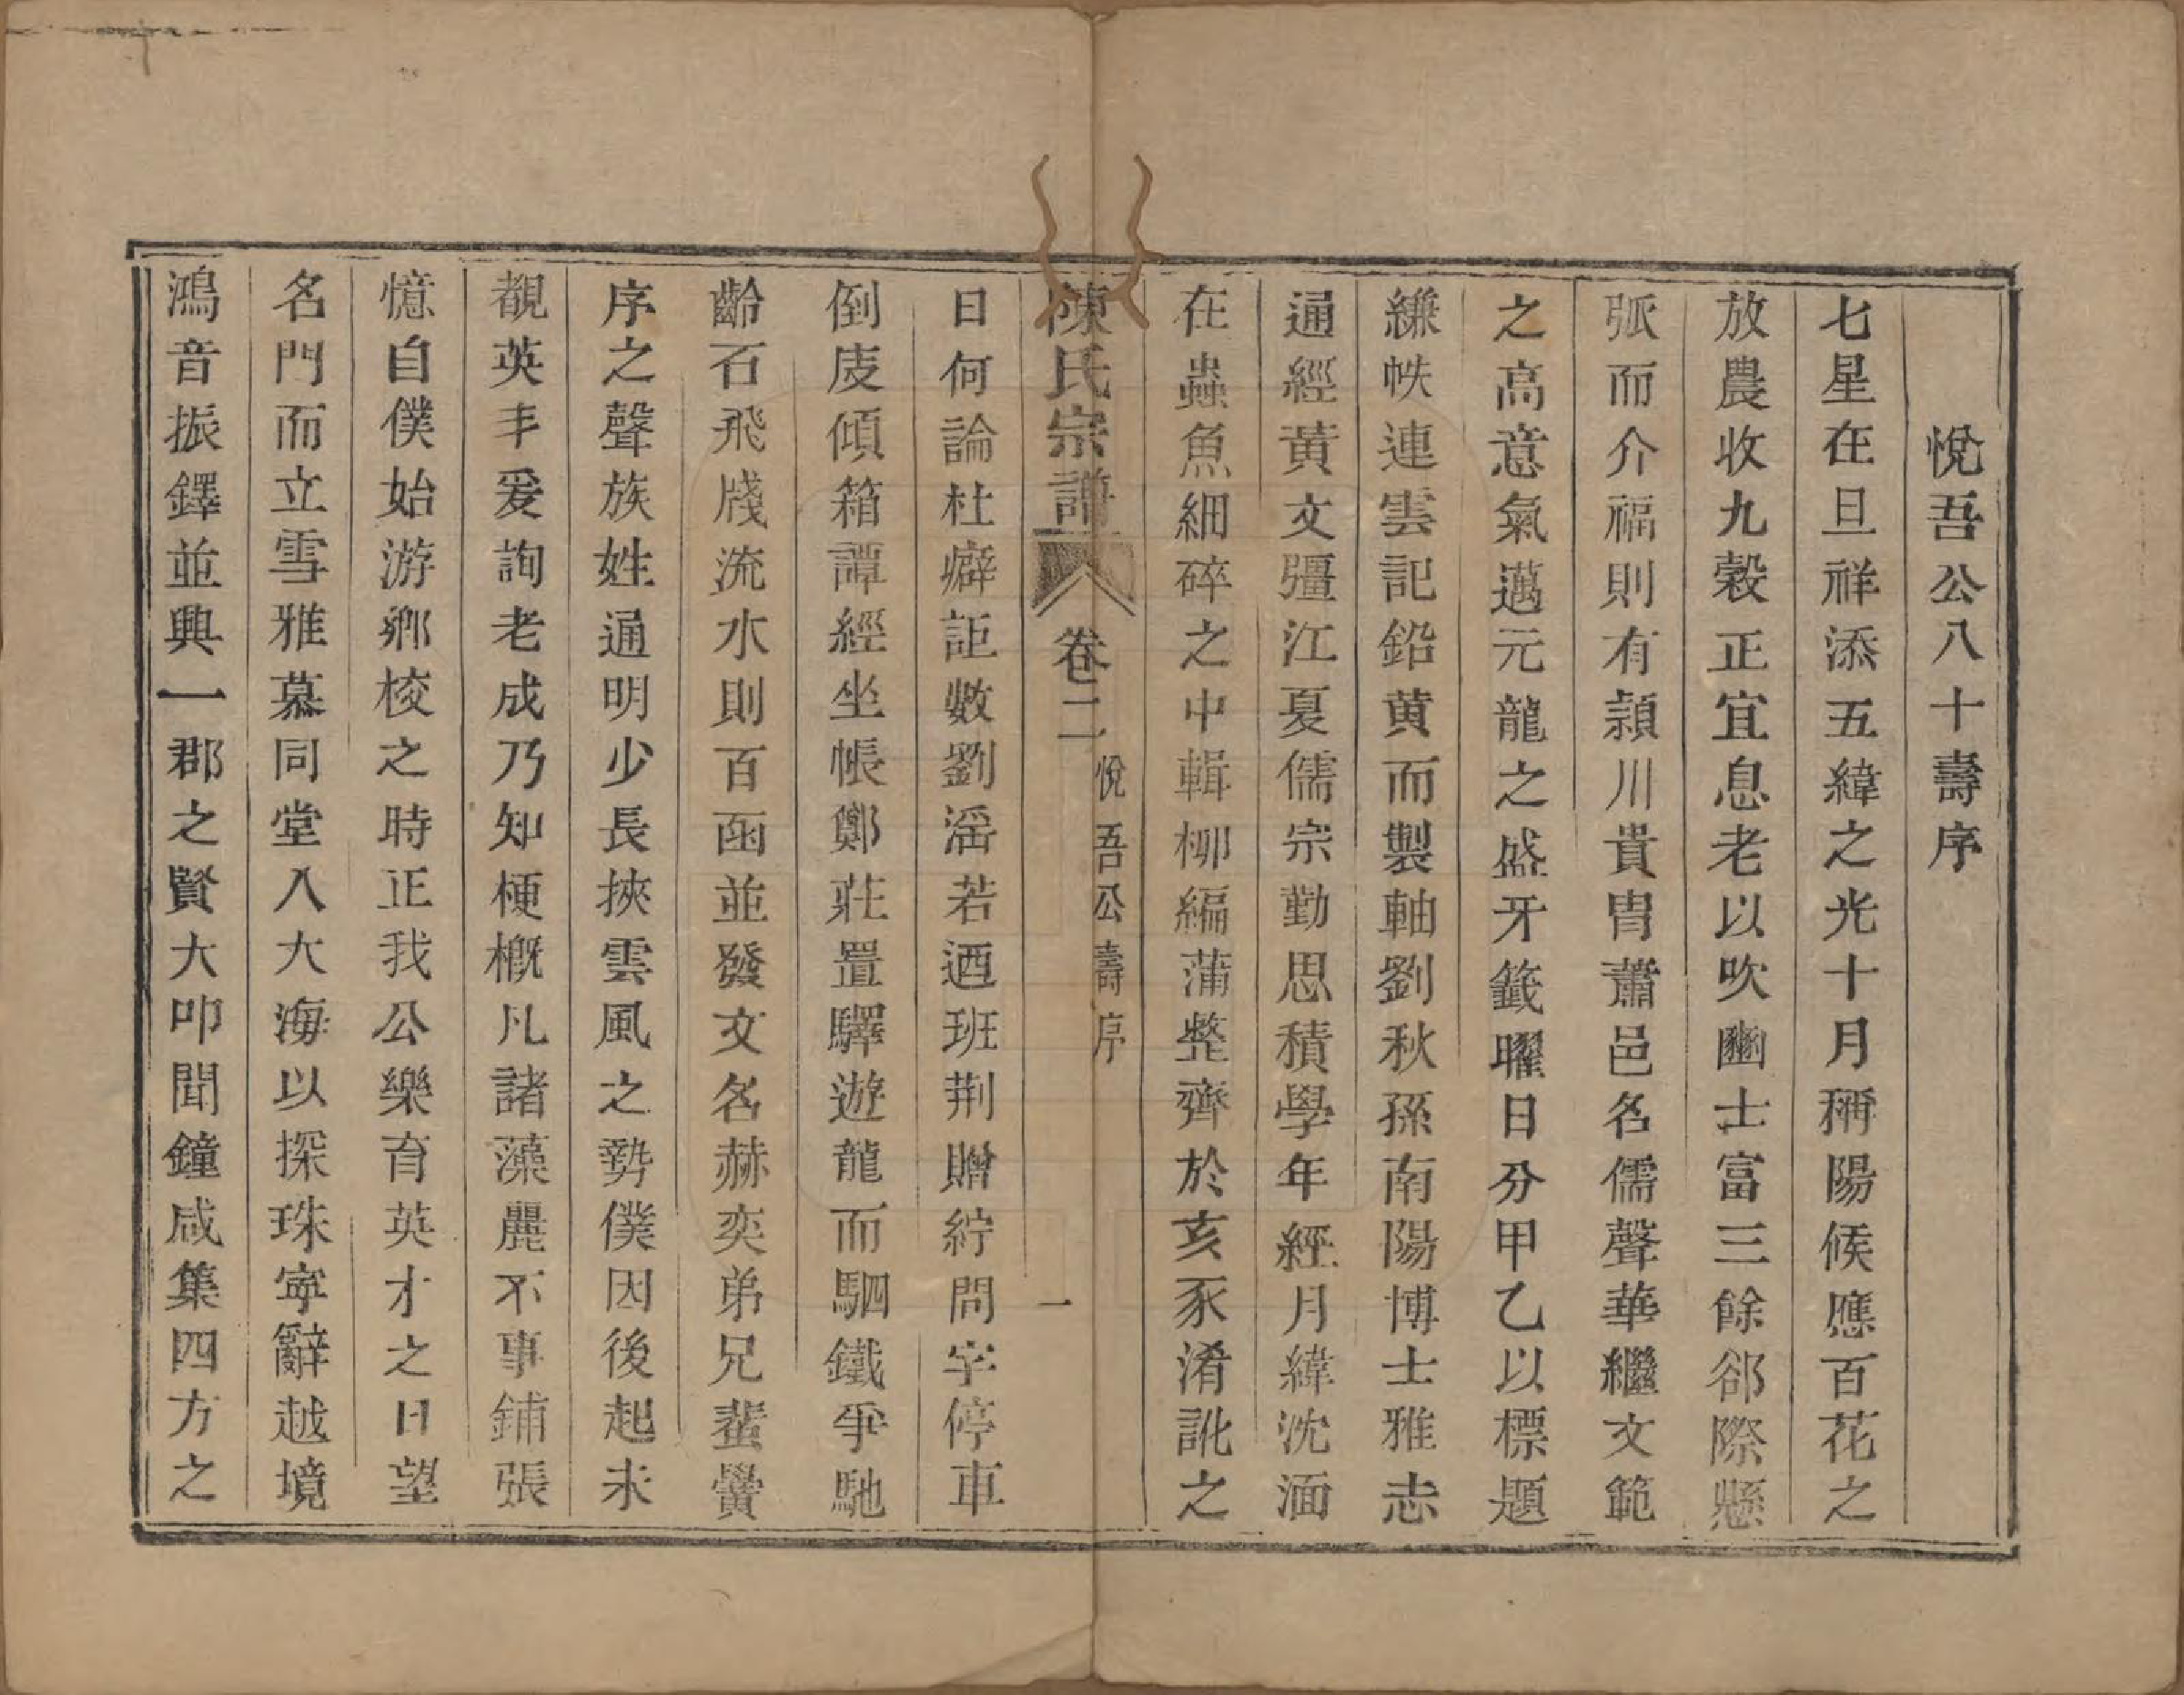 悅吾公八十壽序
七星在旦祥添五緯之光十月稱陽候應百花之
放農收九穀正宜息老以吹豳士富三餘郤際懸
弧而介福則有潁川貴胄蕭邑名儒聲華繼文範
之高意氣邁元龍之盛牙籤曜日分甲乙以標題
縑帙連雲記鉛黃而製軸劉秋孫南陽博士雅志
通經黃文彊江夏儒宗勤思積學年經月緯沈湎
在蟲魚細碎之中輯柳編蒲整齊於亥豕淆訛之
陳氏宗譜 卷二 悅吾公壽序 一
日何論杜癖詎數劉淫若迺班荆贈紵問字停車
倒庋傾箱譚經坐帳鄭莊置驛遊龍而駟鐵爭馳
齡石飛牋流水則百函並發文名赫奕弟兄蜚黌
序之聲族姓通明少長挾雲風之勢僕因後起未
覩英丰爰詢老成乃知梗槪凡諸藻麗不事鋪張
憶自僕始游鄉校之時正我公樂育英才之日望
名門而立雪雅慕同堂入大海以探珠寧辭越境
鴻音振鐸並興一郡之賢大叩聞鐘咸集四方之